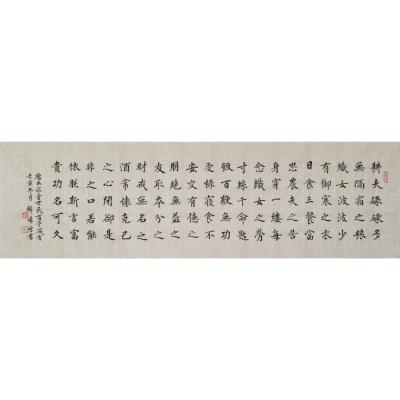 耕夫碌碌多
無隔宵之糧
織女波波少
有御寒之衣
日食三餐當
思農夫之苦
身穿一縷每
念織女之勞
寸絲千命匙
飯百鞭無功
受祿寢食不
安交有德之
朋絕無益之
友取本分之
財戒無名之
酒常懷克己
之心閉卻是
非之口若能
依朕斯言富
貴功名可久
唐太宗李世民百字箴言
壬寅冬月書